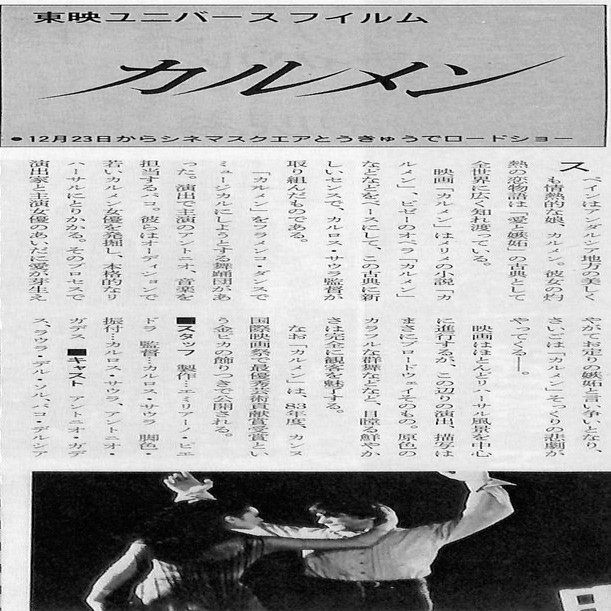 東映ユニバースフィルム
カルメン
●12月23日からシネマスクエアとうきゅうでロードショー
スペインはアンダルシア地方の美しく
も情熱的な娘、カルメン。彼女の灼
熱の恋物語は「愛と嫉妬」の古典として
全世界に広く知れ渡っている。
映画「カルメン」はメリメの小説「カ
ルメン」、ビゼーのオペラ「カルメン」
などなどをベースにして、この古典に新
しいセンスで、カルロス・サウラ監督が
取り組んだものである。
「カルメン」をフラメンコ・ダンスで
ミュージカルにしようとする舞踊団があ
った。演出で主演のアントニオ、音楽を
担当するパコ。彼らはオーディションで
若いカルメン女優を発掘し、本格的なリ
ハーサルにとりかかる。そのプロセスで
演出家と主演女優のあいだに愛が芽生え
やがてお定りの嫉妬と言い争いとなり、
さいごは「カルメン」そっくりの悲劇が
やってくる──。
映画はほとんどリハーサル風景を中心
に進行するが、この辺りの演出、描写は
まさにブロードウェイそのもの。原色の
カラフルな群舞などなど、目瞠る鮮やか
さは完全に観客を魅了する。
なお「カルメン」は、83年度、カンヌ
国際映画祭で最優秀芸術貢献賞受賞とい
う金ピカの飾りつきで公開される。
■スタッフ 製作…エミリアーノ・ピエ
ドラ 監督…カルロス・サウラ 脚色・
振付…カルロス・サウラ、アントニオ・
ガデス ■キャスト アントニオ・ガデ
ス、ラウラ・デル・ソル、パコ・デ・ルシア